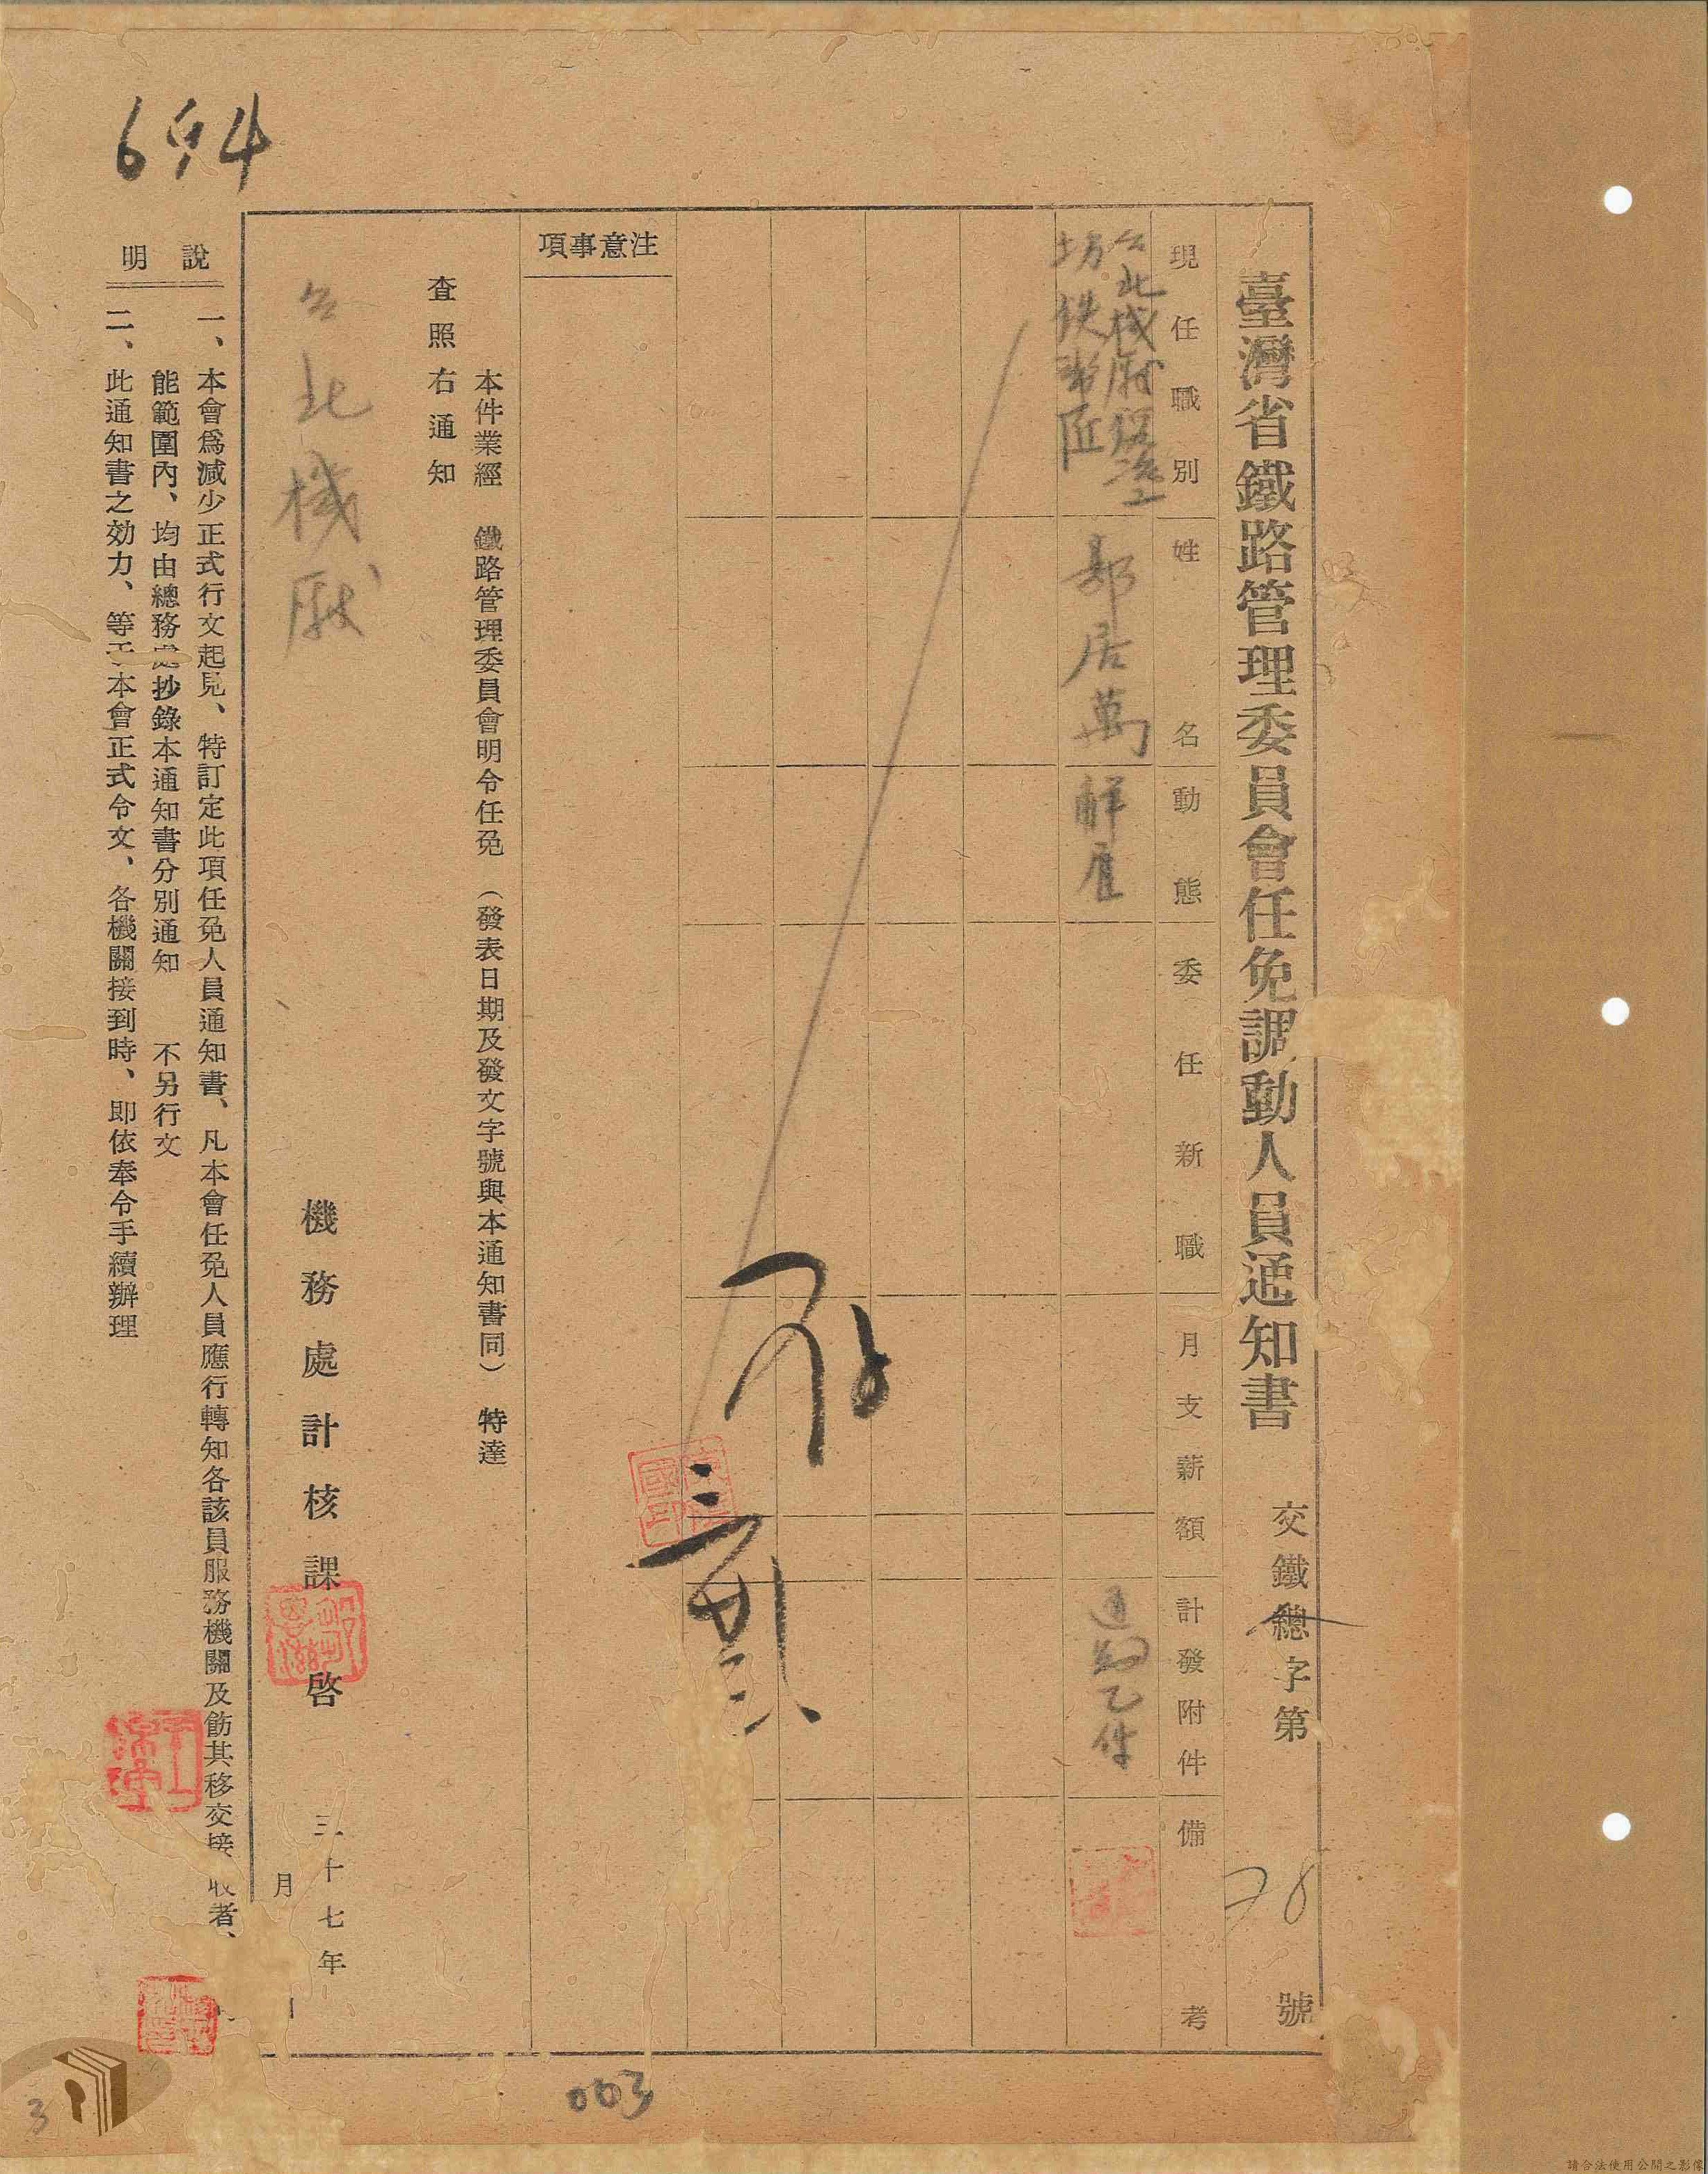 臺灣省鐵路管理委員會任免調動人員通知書
交鐵總字第 76 號
現任職別
姓名
動態
委任新職
月支薪額
計發附件
備考
台北機廠
坊鉄
郭居萬
解雇
通知乙件
注意事項
本件業經 鐵路管理委員會明令任免 (發表日期及發文字號與本通知書同) 特達
查照右通知
台北機廠
機務處計核課 啓
三十七年
月
說明
一、本會爲減少正式行文起見、特訂定此項任免人員通知書、凡本會任免人員應行轉知各該員服務機關及飭其移交接收者、
能範圍內、均由總務處抄錄本通知書分別通知 不另行文
二、此通知書之効力、等于本會正式令文、各機關接到時、即依奉令手續辦理
694
003
3
請合法使用公開之影像